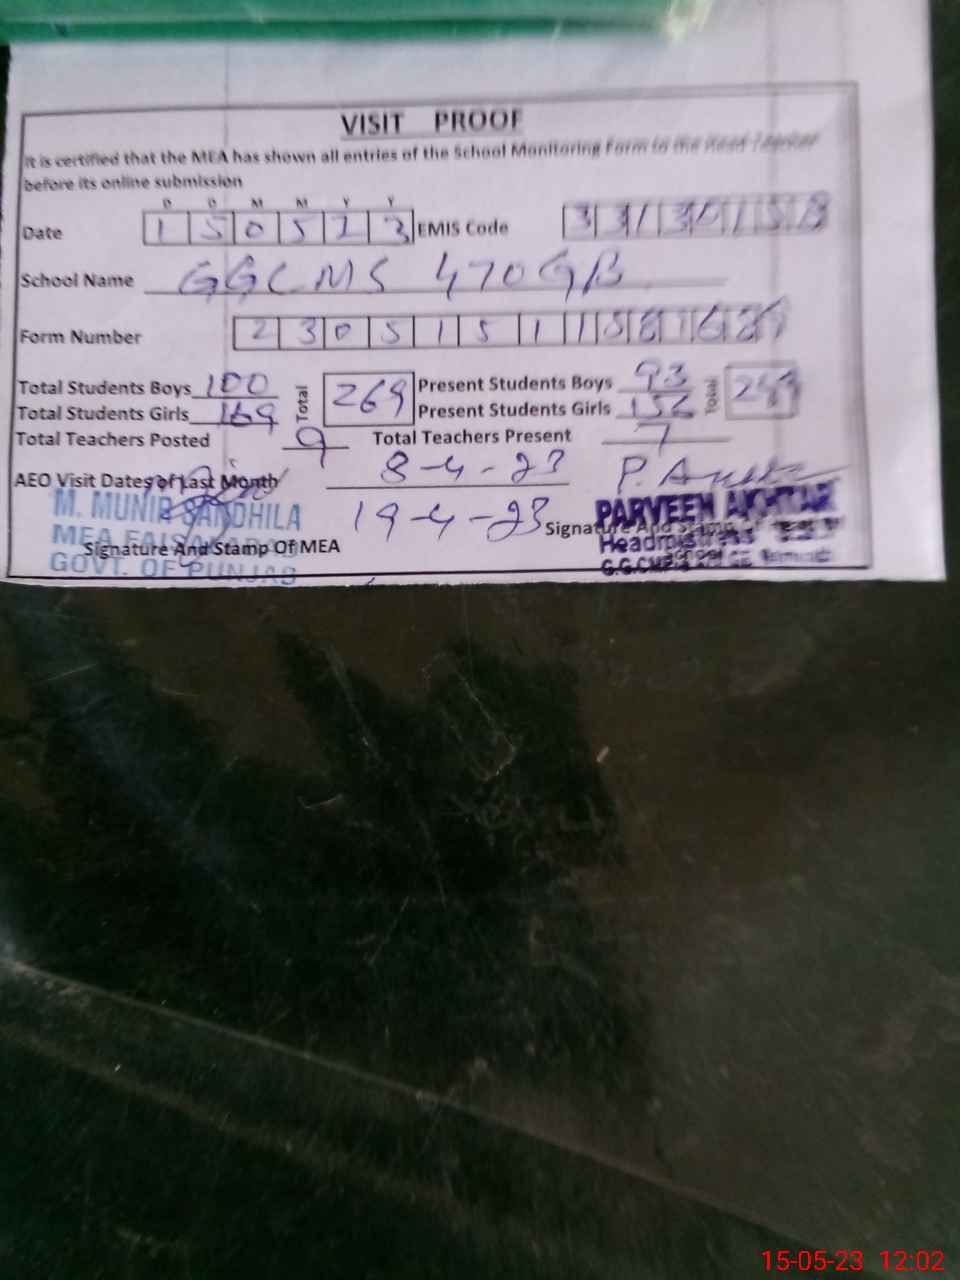 VISIT PROOF
It is certified that the MEA has shown all entries of the School Monitoring Form to the Head Teacher
before its online submission
D D M M Y Y
Date 1 5 0 5 2 3 EMIS Code
School Name GGCMS 470GB
Form Number 2 3 0 5 1 5 1 1
Total Students Boys 100 Total 269 Present Students Boys 93 Total
Total Students Girls 169 Present Students Girls
Total Teachers Posted 9 Total Teachers Present 7
AEO Visit Dates of Last Month 8-4-23
19-4-23
M. MUNIR SANDHILA
MEA FAISALABAD
GOVT. OF PUNJAB
Signature And Stamp Of MEA
PARVEEN AKHTAR
Signature And Stamp Of
Headmistress
School
15-05-23 12:02